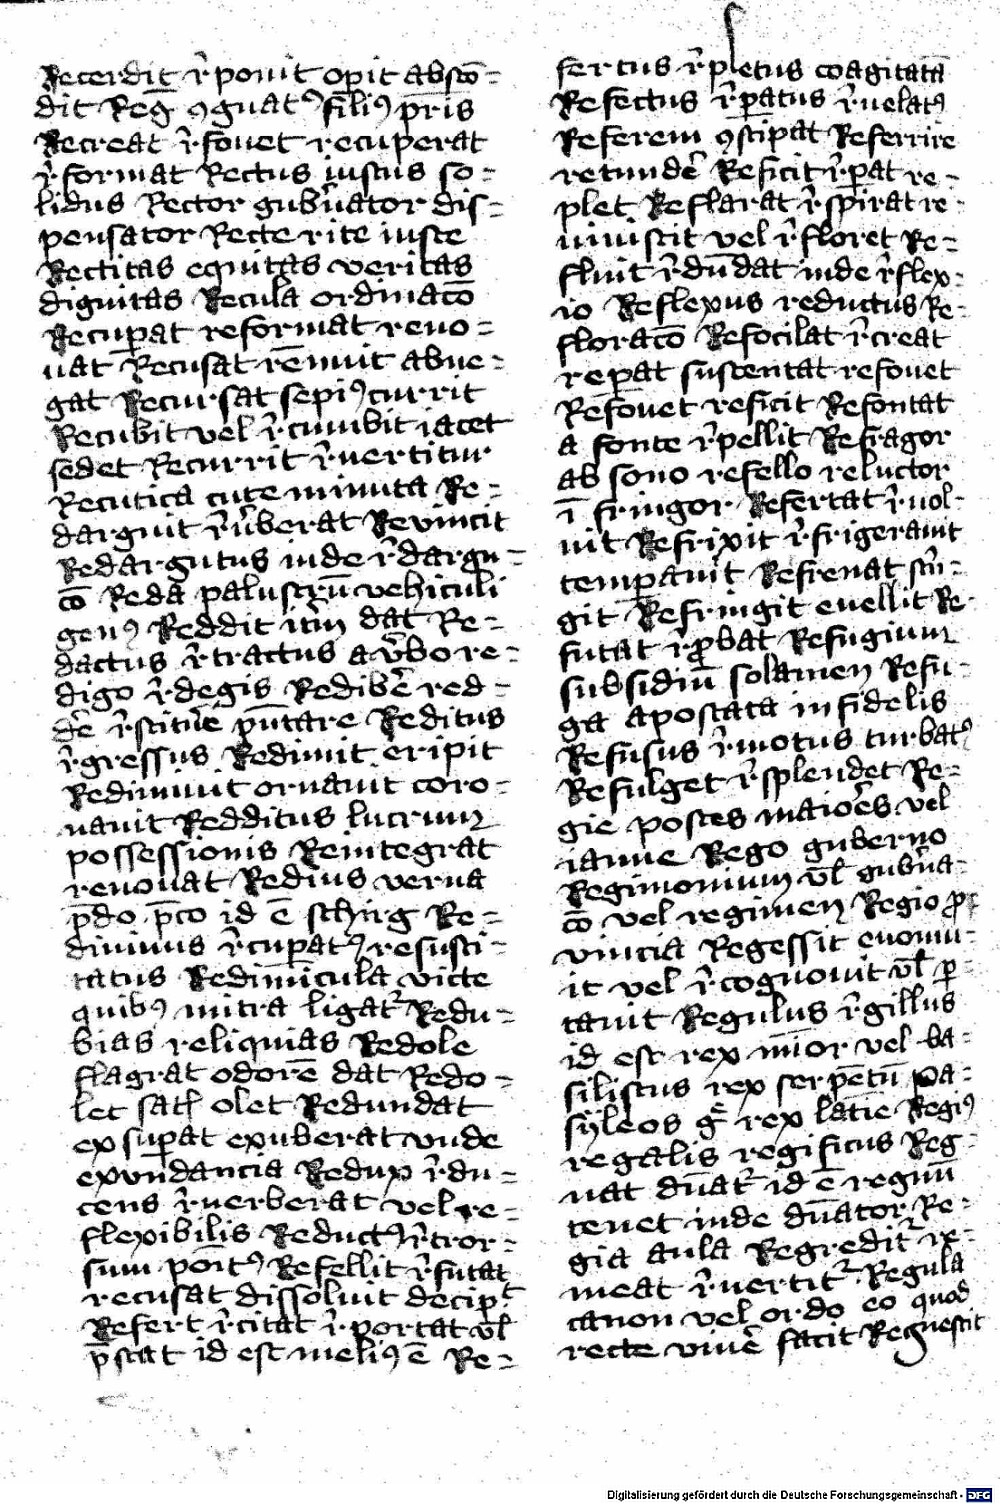 Recerdit r̄ ponit opit absco=
dit Reg̅ ꝯgnatꝰ filiꝰ p̅ris
Recreat r̄fouet recuperat
r̄format Rectus iustus so=
lidus Rector gub̅nator dis=
pensator Recte rite iuste
Rectitas equitas veritas
dignitas Recula ordinaco̅
Recup̅at reformat reno=
uat Recusat re̅nuit abne=
gat Recursat sepiꝰ currit
Recubit vel r̄cumbit iacet
sedet Recurrit r̄uertitur
Recutica cute minuta Re=
darguit r̄u̅berat Revincit
Redargutus inde r̄dargu=
co̅ Reda palustru̅ vehiculi
genꝰ Reddit itm dat Re=
dactus r̄tractus a v̅bo re=
digo r̄degis Redibe̅ red=
de̅ r̄stitue̅ pu̅tare Reditus
r̄gressus Redimit eripit
Redimiuit ornauit coro=
nauit Redditus lucrum
possessionis Reintegrat
renouat Redius verna
p̅do p̅co id e̅ schirg Re=
diuiuus r̄cup̅atꝰ resusci=
tatus Redimicula victe
quibꝰ mitra ligat᷑ Redu=
bias reliquias Redole
flagrat odore̅ dat Redo=
let sat olet Redundat
exsup̅at exuberat vnde
exvndancia Redux r̄du=
cens r̄uerberat vel re=
flexibilis Reductꝰ r̄tror=
sum poitꝰ Refellit r̄futat
recusat dissoluit decip̅t
Refert r̄citat r̄portat vl̅
p̅stat id est meliꝰ e̅ Re=
fertus r̄pletus coagitata̅
Refectus r̄p̅atus r̄uelatꝰ
Referem ꝯstipat Referrire
retunde̅ Reficit r̄p̅at re=
plet Reflarat r̄spirat re=
uiuiscit vel r̄floret Re=
fluit r̄du̅dat inde r̄flex=
io Reflexus reductus Re=
floraco̅ Refocilat r̄creat
rep̅at sustentat refouet
Refouet reficit Refontat
a fonte r̄pellit Refragor
ab sono refello reluctor
i̅ fringor Refertat r̄uol=
uit Refrixit r̄frigerauit
temp̅auit Refrenat stri̅=
git Refringit euellit Re=
futat r̄ꝓbat Refugium
subsidiu̅ solamen Refu=
ga apostata infidelis
Refusus r̄motus turbatꝰ
Refulget r̄splendet Re=
gie postes maiores vel
ianue Rego guberno
Regimonium vl̅ gub̅na=
co̅ vel regimen Regio ꝓ=
vincia Regessit euomu=
it vel r̄cognouit vl̅ p=
tauit Regulus r̄gillus
id est rex mi̅or vel ba=
siliscus rex serpe̅tu̅ pa=
syleos g̅e rex latine Regiꝰ
regalis regificus Reg=
nat du̅at᷑ id e̅ regnu̅
tenet inde du̅ator Re=
gia aula Regredit᷑ re=
meat r̄uertit᷑ Regula
canon vel ordo eo quod
recte viue̅ facit Requescit
Digitalisierung gefördert durch die Deutsche Forschungsgemeinschaft - DFG